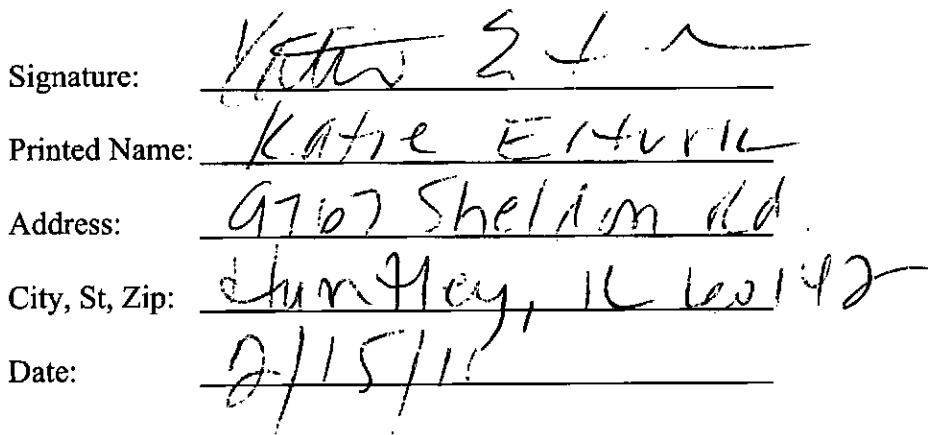 Signature: Katie
Printed Name: Katie
Address: 9767 Sheldon Rd
City, St, Zip: Huntley, IL 60142
Date: 2/15/1